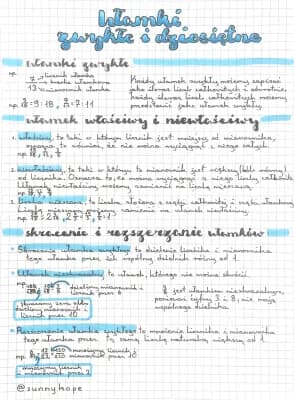 Ułamki
zwykłe i dziesiętne
ułamki zwykłe
np. 7 → licznik ułamka
→ kreska ułamkowa
13 → mianownik ułamka
Każdy ułamek zwykły możemy zapisać
jako iloraz liczb całkowitych i odwrotnie,
każdy iloraz liczb całkowitych możemy
przedstawić jako ułamek zwykły.
ułamek właściwy i niewłaściwy
1. właściwy, to taki w którym licznik jest mniejszy od mianownika,
oznacza to również, że nie można wyciągnąć z niego całych.
2. niewłaściwy, to taki w którym to mianownik jest większy (lub równy)
od licznika. Oznacza to, że można wyciągnąć z niego liczby całkowite.
Ułamek niewłaściwy możemy zamienić na liczbę mieszaną.
3. liczba mieszana, to liczba złożona z części całkowitej i części ułamkowej.
skracanie i rozszerzanie ułamków
• Skracanie ułamka zwykłego to dzielenie licznika i mianownika
tego ułamka przez ich wspólny dzielnik różny od 1
• Ułamek nieskracalny to ułamek, którego nie można skrócić.
np.
dzielimy mianownik i
licznik przez 6
skracamy zera, gdyż
dzielimy mianownik i
licznik przez 10
jest ułamkiem nieskracalnym,
ponieważ liczby 3 i 8, nie mają
wspólnego dzielnika.
• Rozszerzanie ułamka zwykłego to mnożenie licznika i mianownika
tego ułamka przez tę samą liczbę naturalną większą od 1.
np.
mnożymy licznik i
mianownik przez 10
mnożymy licznik
i mianownik przez 2
@sunnyhope